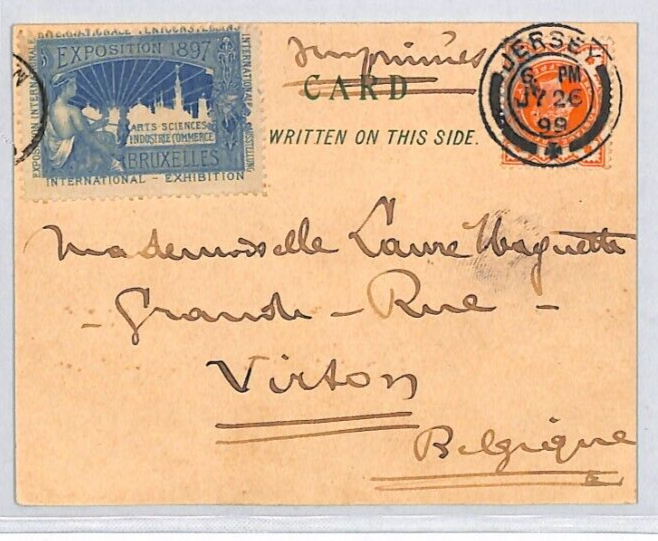 EXPOSITION 1897
ARTS-SCIENCES
INDUSTRIE COMMERCE
BRUXELLES
INTERNATIONAL - EXHIBITION
EXPOSITION INTERNATIONALE
Imprimés
CARD
WRITTEN ON THIS SIDE.
JERSEY
6 PM
JY 26
99
Mademoiselle Laure
- Grande - Rue -
Virton
Belgique